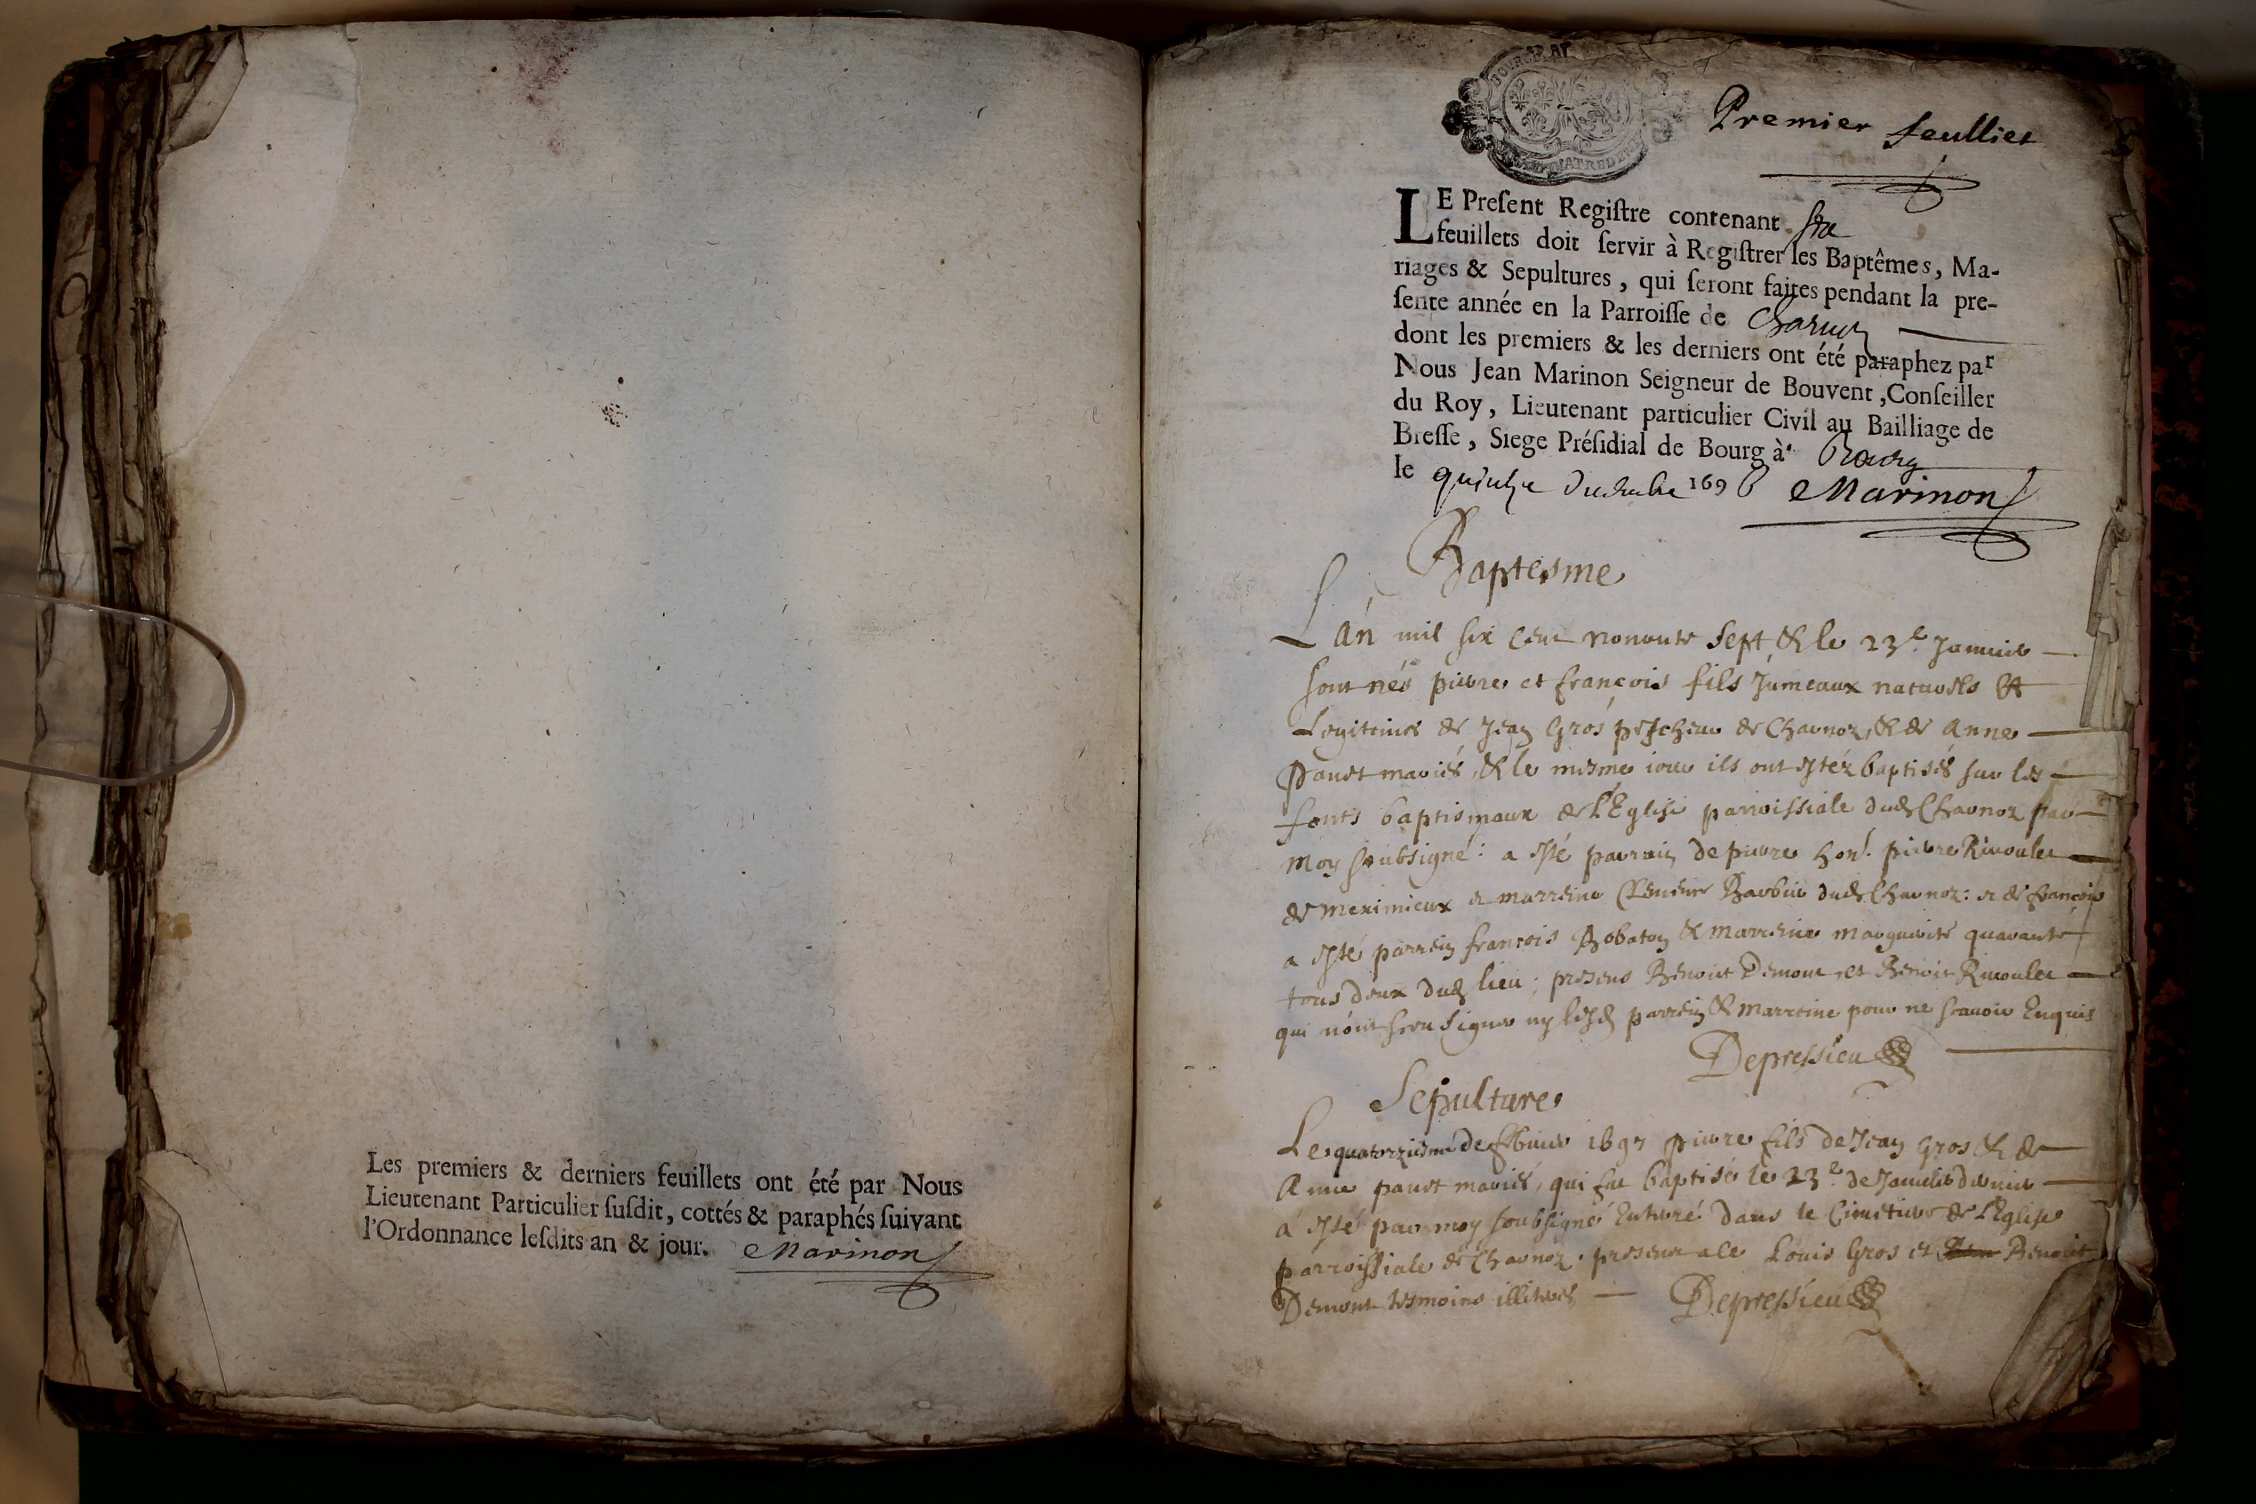 Les premiers & derniers feuillets ont été par Nous
Lieutenant Particulier ſuſdit, cottés & paraphés ſuivant
l'Ordonnance leſdits an & jour. Marinon
Premier feulliet
LE Preſent Regiſtre contenant six
feuillets doit ſervir à Regiſtrer les Baptêmes, Ma-
riages & Sepultures, qui ſeront faites pendant la pre-
ſente année en la Parroiſſe de Charnoz
dont les premiers & les derniers ont été paraphez par
Nous Jean Marinon Seigneur de Bouvent, Conſeiller
du Roy, Lieutenant particulier Civil au Bailliage de
Breſſe, Siege Préſidial de Bourg à Bourg
le quinze 1696 Marinon
Baptesme
L'an mil six cent nonante sept & le 23e Janvier
sont nés pierre et francois fils Jumeaux naturels &
Legitimes de Jean Gros pescheur de Charnoz, & de Anne
panet mariés, & le mesme iour ils ont estéz baptisés sur les
fonts baptismaux de l'Eglise parroissiale dud Charnoz par
moy soubsigné: a esté parrain de pierre hon. pierre Rivoulet
de meximieux et marreine Clemence Barbier dud Charnoz: et de francois
a esté parrein francois Bobaton & marreine marguerite quarante
tous deux dud lieu; presens Benoit Demont, et Benoit Rivoulet
qui n'ont sceu signer ny lesd parrein & marreine pour ne scavoir Enquis
Depressieu
Sepulture
Le quatorziesme de febvrier 1697 pierre fils de Jean Gros & de
Anne panet mariés, qui fut baptisé le 23e de Janvier dernier
a esté par moy soubsigné Enterré dans le Cimetiere de l'Eglise
parroissiale de Charnoz. present a ce Louis Gros et Benoit
Demont tesmoins illiterés Depressieu